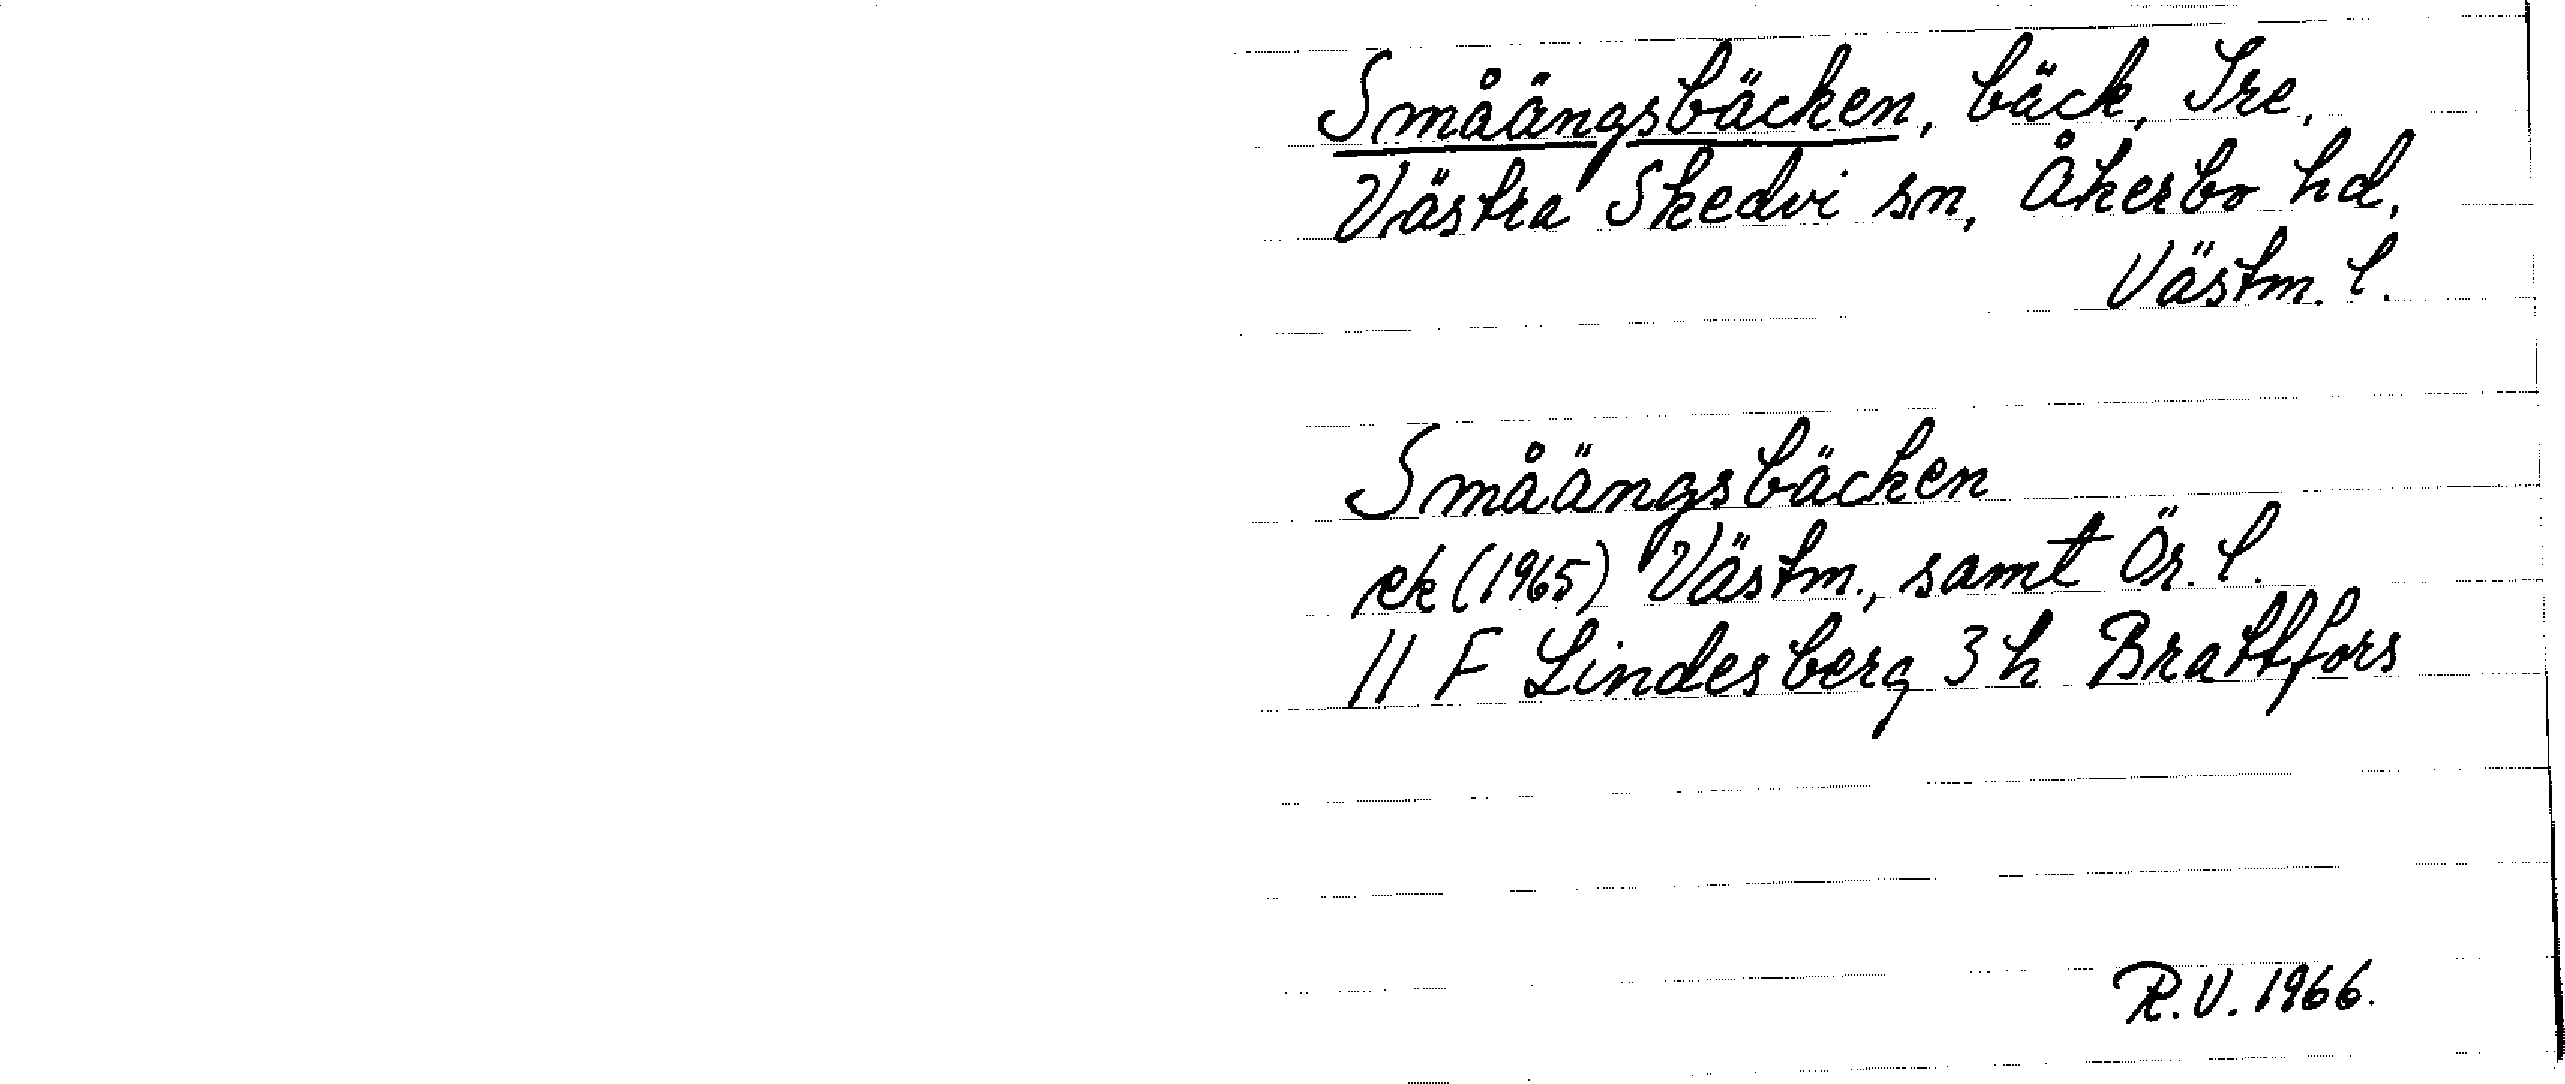 Småängsbäcken, bäck, Sre,
Västra Skedvi sn, Åkerbo hd,
Västm. l.
Småängsbäcken
ek (1965) Västm., samt Ör. l.
11 F Lindesberg 3 h Brattfors
R.V. 1966.